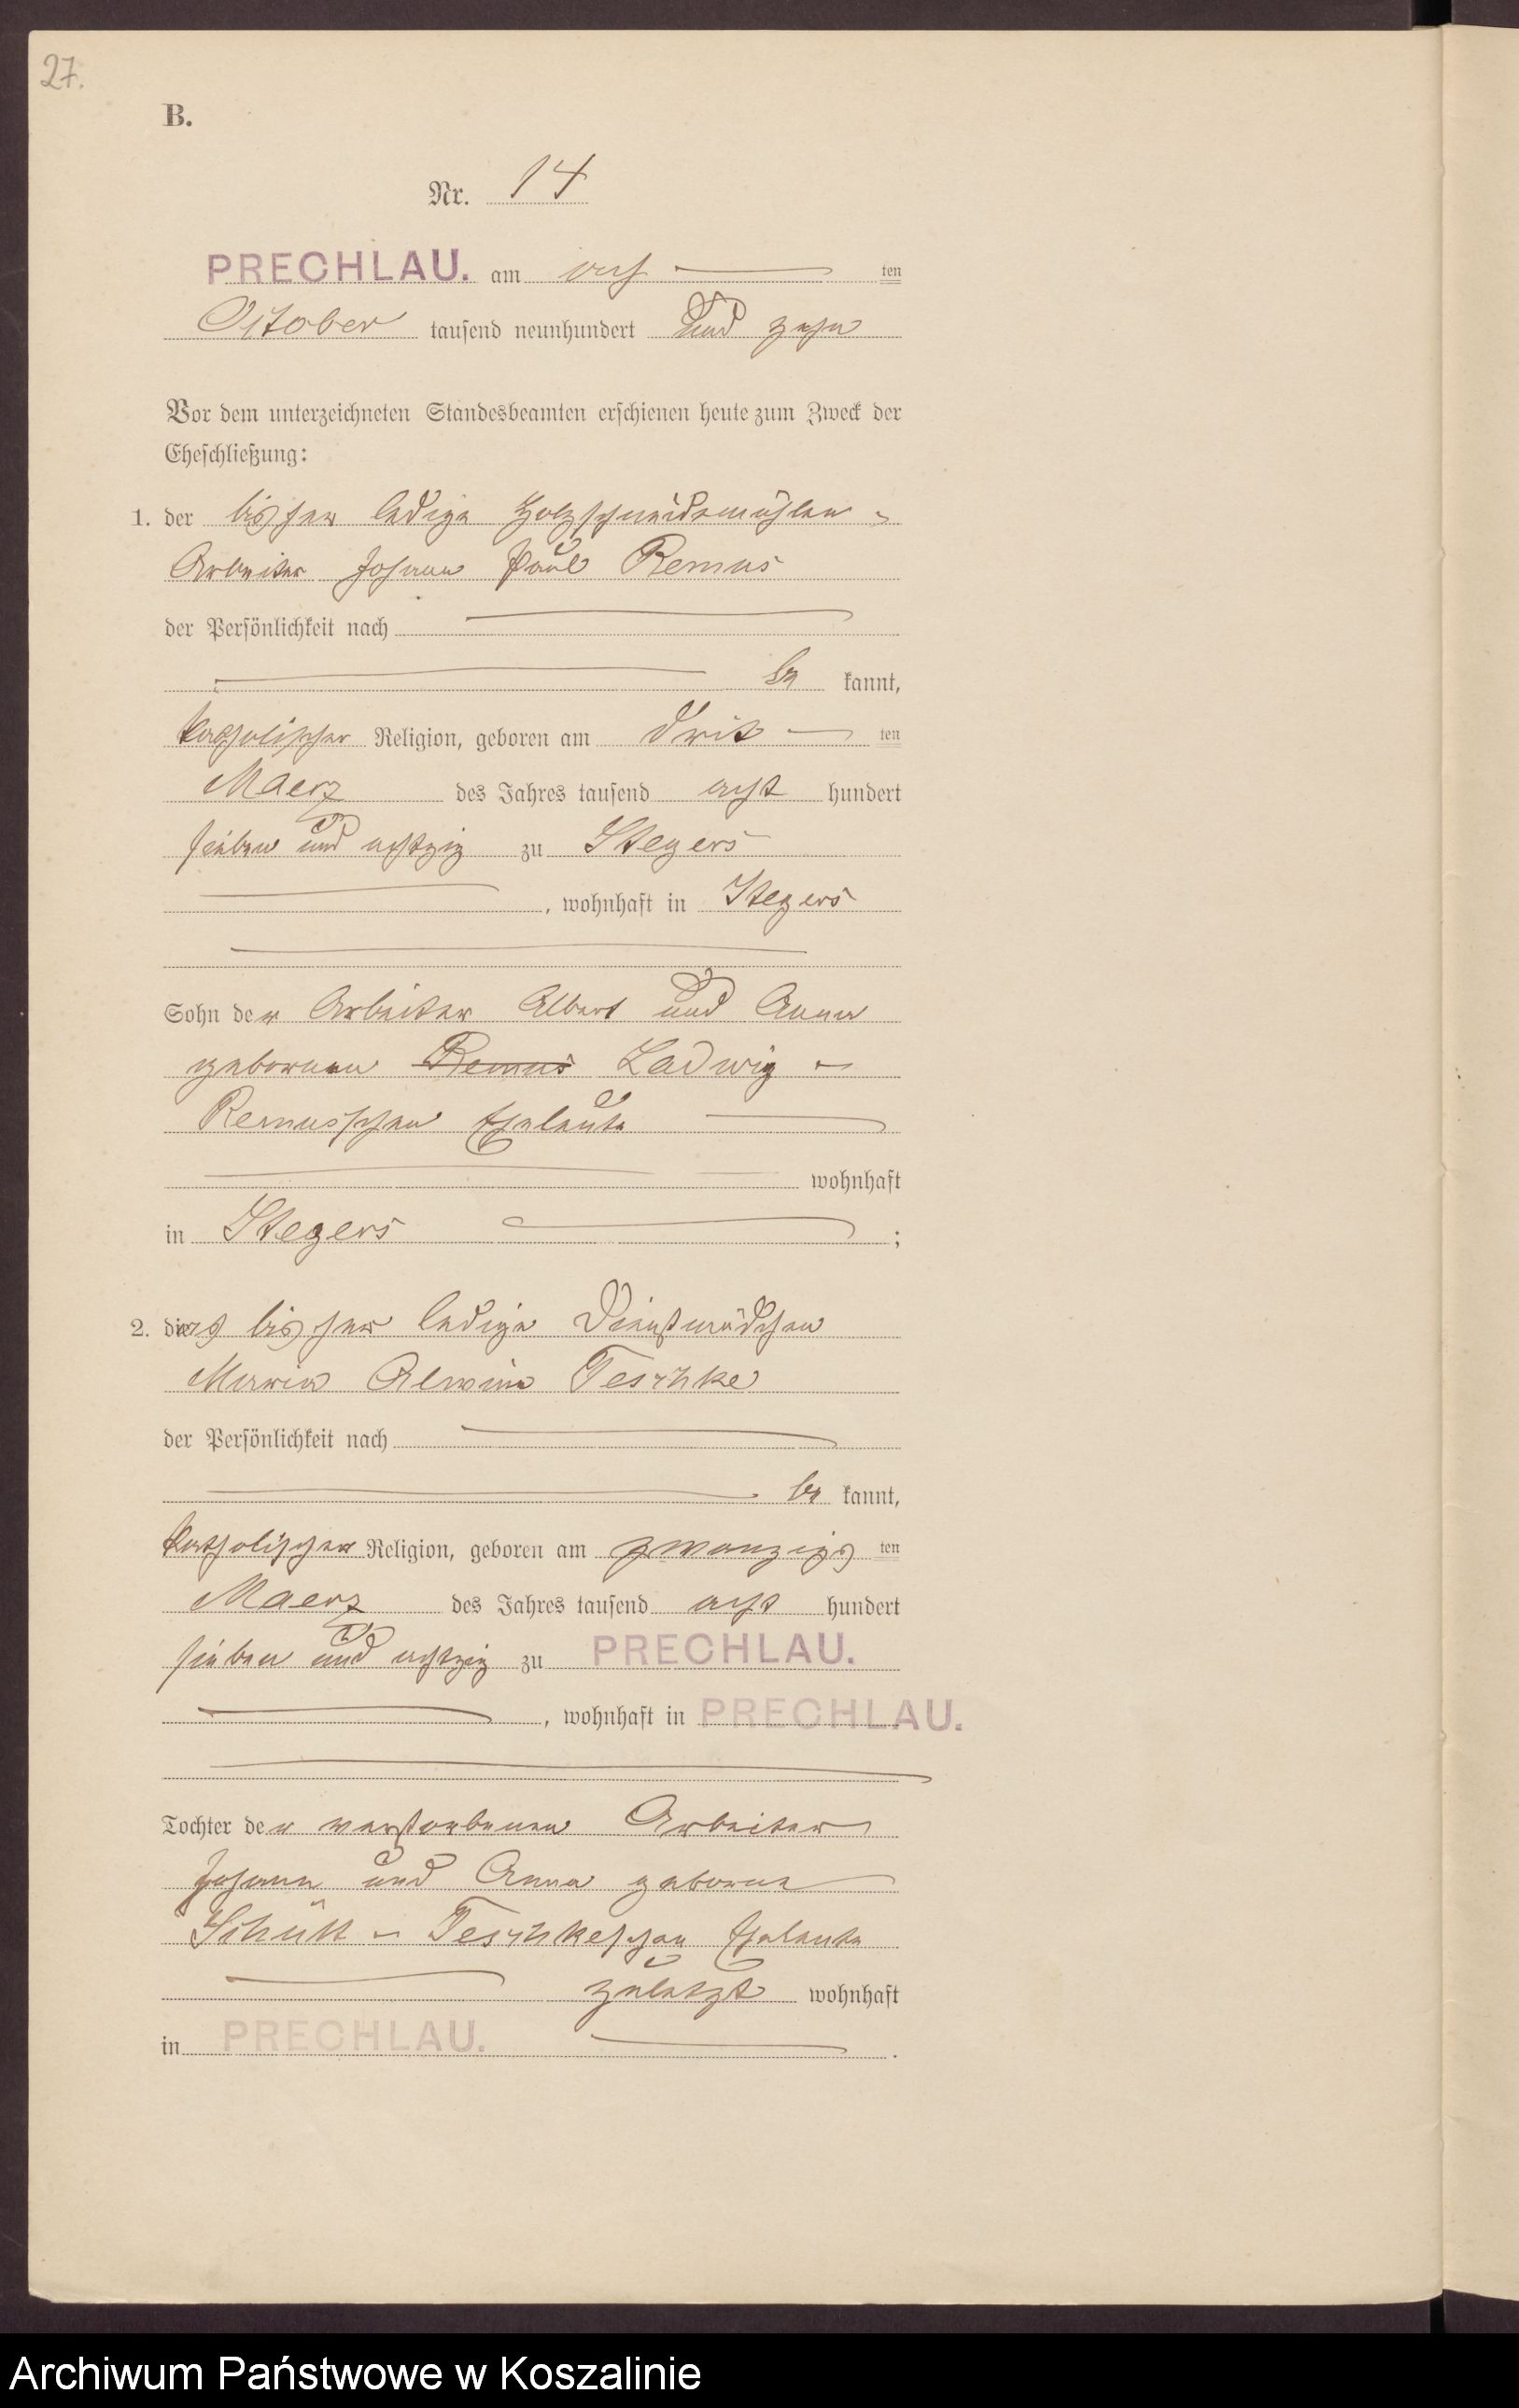 27.
B.
Nr. 14
PRECHLAU. am ach ten
October tausend neunhundert und zehn
Vor dem unterzeichneten Standesbeamten erschienen heute zum Zweck der
Eheschließung:
1. der bisher ledige Holzschneidemühlen-
Arbeiter Johann Paul Remus
der Persönlichkeit nach
be kannt,
katholischer Religion, geboren am drit ten
Maerz des Jahres tausend acht hundert
sieben und achtzig zu Stegers
, wohnhaft in Stegers
Sohn der Arbeiter Albert und Anna
geborenen Remus Ladwig -
Remusschen Eheleute
wohnhaft
in Stegers ;
2. das bisher ledige Dienstmädchen
Maria Alwine Teschke
der Persönlichkeit nach
be kannt,
katholischer Religion, geboren am zwanzigs ten
Maerz des Jahres tausend acht hundert
sieben und achtzig zu PRECHLAU.
, wohnhaft in PRECHLAU.
Tochter der verstorbenen Arbeiter
Johann und Anna geborene
Schütt - Teschkeschen Eheleute
zuletzt wohnhaft
in PRECHLAU. .
Archiwum Państwowe w Koszalinie